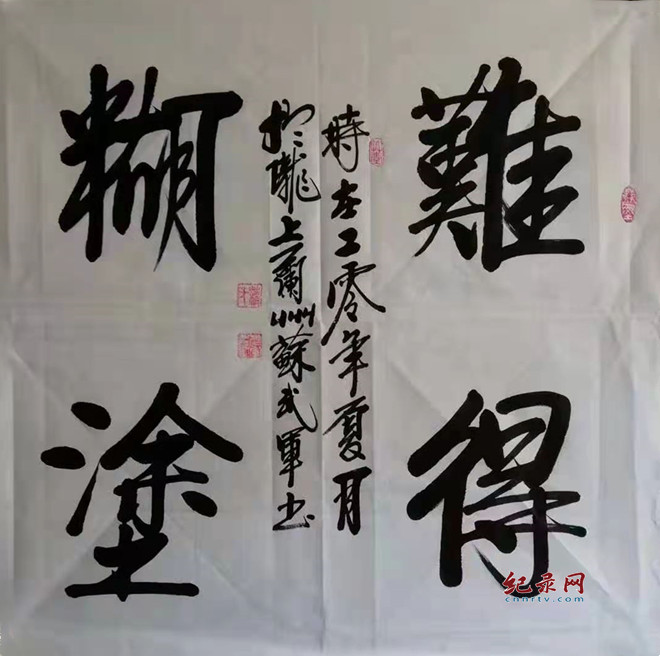 難得
糊塗
時在二零年夏月
於隴上蘭州蘇武軍书
纪录网
cnnrtv.com